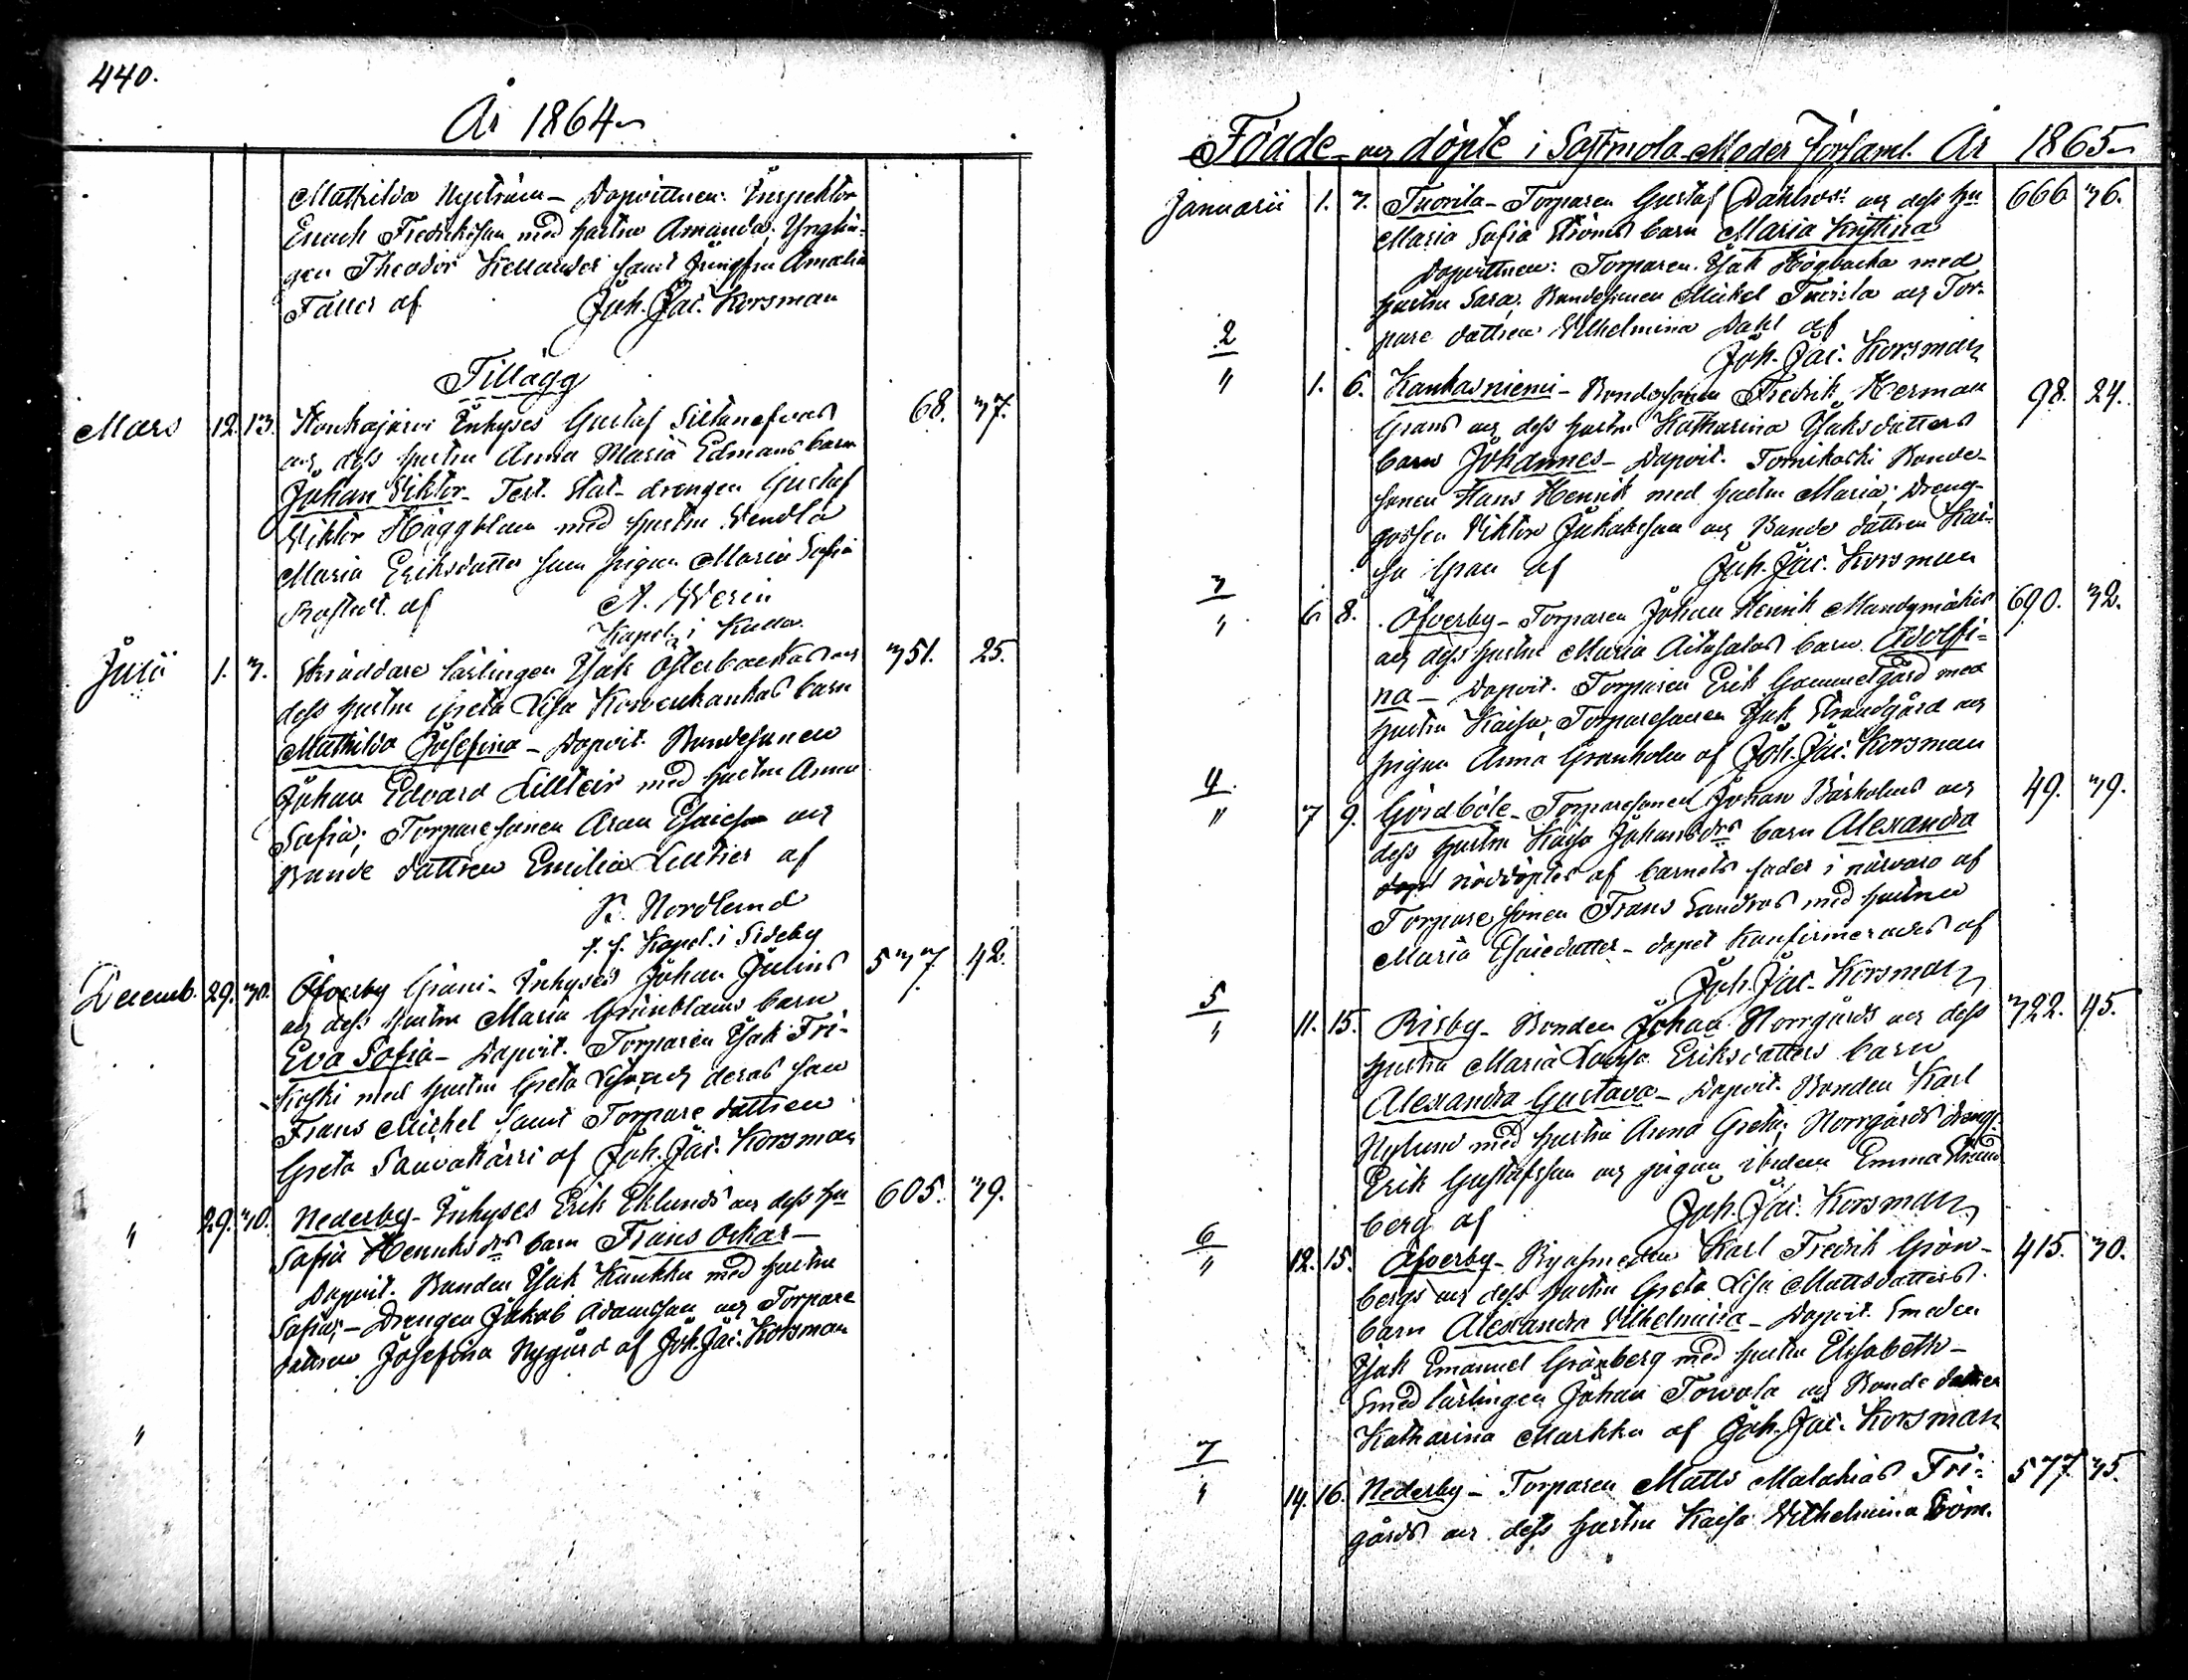 440.
År 1864
Mathilda Nyström - Dopvittnen: Inspektor
Enoch Fredriksson med hustru Amanda; Ynglin-
gen Theodor Kellander samt Jungfru Amalia
Faller af Joh. Jac. Korsman
Tillägg
Mars 12. 13. Honkajärvi Inhyses Gustaf Siltanefvas 68. 37.
och dess hustru Anna Maria Edmans barn
Johan Viktor - Test. Stat-drengen Gustaf
Viktor Häggblom med hustru Wendla
Maria Eriksdotter samt pigan Maria Sofia
af A. Werin
Kapel. i
Junii 1. 3. Skräddare lärlingen Isak Österbackas och 351. 25.
dess hustru Greta Lisa Korvenkankas barn
Mathilda Josefina - Dopvit. Bondesonen
Johan Edvard Lillteir med hustru Anna
Sofia; Torparesonen Aron Esaiesson och
Bonde dottren Emilia Lilltier af
K. Nordlund
t. f. Kapel. i Sideby
Decemb. 29. 30. Öfverby Gräni - Inhyses Johan Julins 537. 42.
och dess hustru Maria Grönbloms barn
Eva Sofia - Dopvit. Torparen Isak Fri-
koski med hustru Greta Lisa och deras son
Frans Mickel samt Torpare dottren
Greta Sauvakärri af Joh. Jac. Korsman
" 29. 30. Nederby - Inhyses Erik Eklunds och dess hu 605. 39.
Sofia Henriks drs barn Frans Oskar -
Dopvit. Bonden Isak Kankku med hustru
Sofia; - Drengen Jakob Adamsson och Torpare
dottren Josefina Nygård af Joh. Jac. Korsman
"
Födde och döpte i Sastmola Moder Församl. År 1865
Januarii 1. 3. Tuorila - Torparen Gustaf Dahlros och dess hu 666 36.
Maria Sofia Ströms barn Maria Kristina
Dopvittnen: Torparen Isak Högbacka med
hustru Sara; Bondesonen Mickel Tuorila och Tor-
pare dottren Wilhelmina Dahl af
Joh. Jac. Korsman
2
" 1. 6. Kankasniemi - Bondesonen Fredrik Herman 98. 24.
Grans och dess hustru Katharina Isaksdotters
barn Johannes - Dopvit. Tornikoski Bonde-
sonen Hans Henrik med hustru Maria; Dreng-
gossen Viktor Jakobsson och Bonde dottren Kai-
sa Gran af Joh. Jac. Korsman
3
" 6 8. Öfverby - Torparen Johan Henrik Mandymäkis 690. 32.
och dess hustru Maria Aitasalos barn Adolfi-
na - Dopvit. Torparen Erik Gammelgård med
hustru Kaisa; Torparesonen Isak Strandgård och
pigan Anna Granholm af Joh. Jac. Korsman
4
" 7 9. Gördböle - Torparesonen Johan Björkholms och 49. 39.
dess hustru Kaisa Johansdrs barn Alexandra
nöddöptes af barnets fader i närvaro af
Torparesonen Frans Sandros med hustru
Maria Esaiedotter - dopet konfirmerades af
Joh. Jac. Korsman
5
" 11. 15. Risby - Bonden Johan Norrgårds och dess 322. 45.
hustru Maria Lovisa Eriksdotters barn
Alexandra Gustava - Dopvit. Bonden Karl
Nylund med hustru Anna Greta; Norrgårds dreng
Erik Gustafsson och pigan ibidem Emma Strand-
berg af Joh. Jac. Korsman
6
" 12. 15. Öfverby - Karl Fredrik Grön- 415. 30.
bergs och dess hustru Greta Lisa Mattsdotters
barn Alexandra Vilhelmina - Dopvit. Smeden
Isak Emanuel Grönberg med hustru Elisabeth -
Smedlärlingen Johan Torvola och Bonde dottren
Katharina Markku af Joh. Jac. Korsman
7
" 14. 16. Nederby - Torparen Matts Malakias Fri- 577. 35.
gårds och dess hustru Kaisa Wilhelmina Ström-